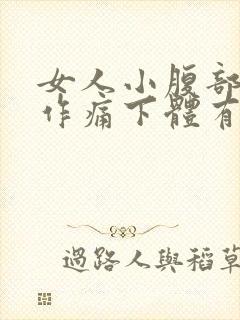 女人小腹部
作痛下體有
過路人與稻草